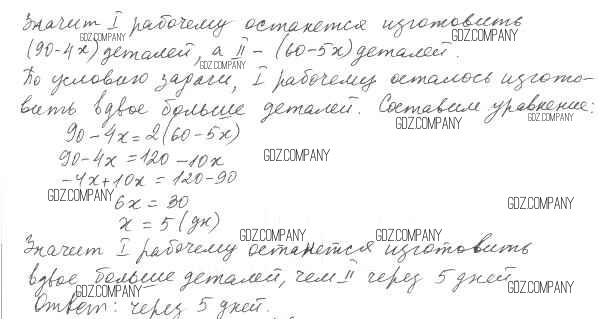 Значит I рабочему останется изготовить
(90-4x) деталей, а II - (60-5x) деталей.
По условию задачи, I рабочему осталось изгото-
вить вдвое больше деталей. Составим уравнение:
90-4x=2(60-5x)
90-4x=120-10x
-4x+10x=120-90
6x=30
x=5(дн)
Значит I рабочему останется изготовить
вдвое больше деталей, чем II через 5 дней
Ответ: через 5 дней.
GDZ.COMPANY
GDZ.COMPANY
GDZ.COMPANY
GDZ.COMPANY
GDZ.COMPANY
GDZ.COMPANY
GDZ.COMPANY
GDZ.COMPANY
GDZ.COMPANY
GDZ.COMPANY
GDZ.COMPANY
GDZ.COMPANY